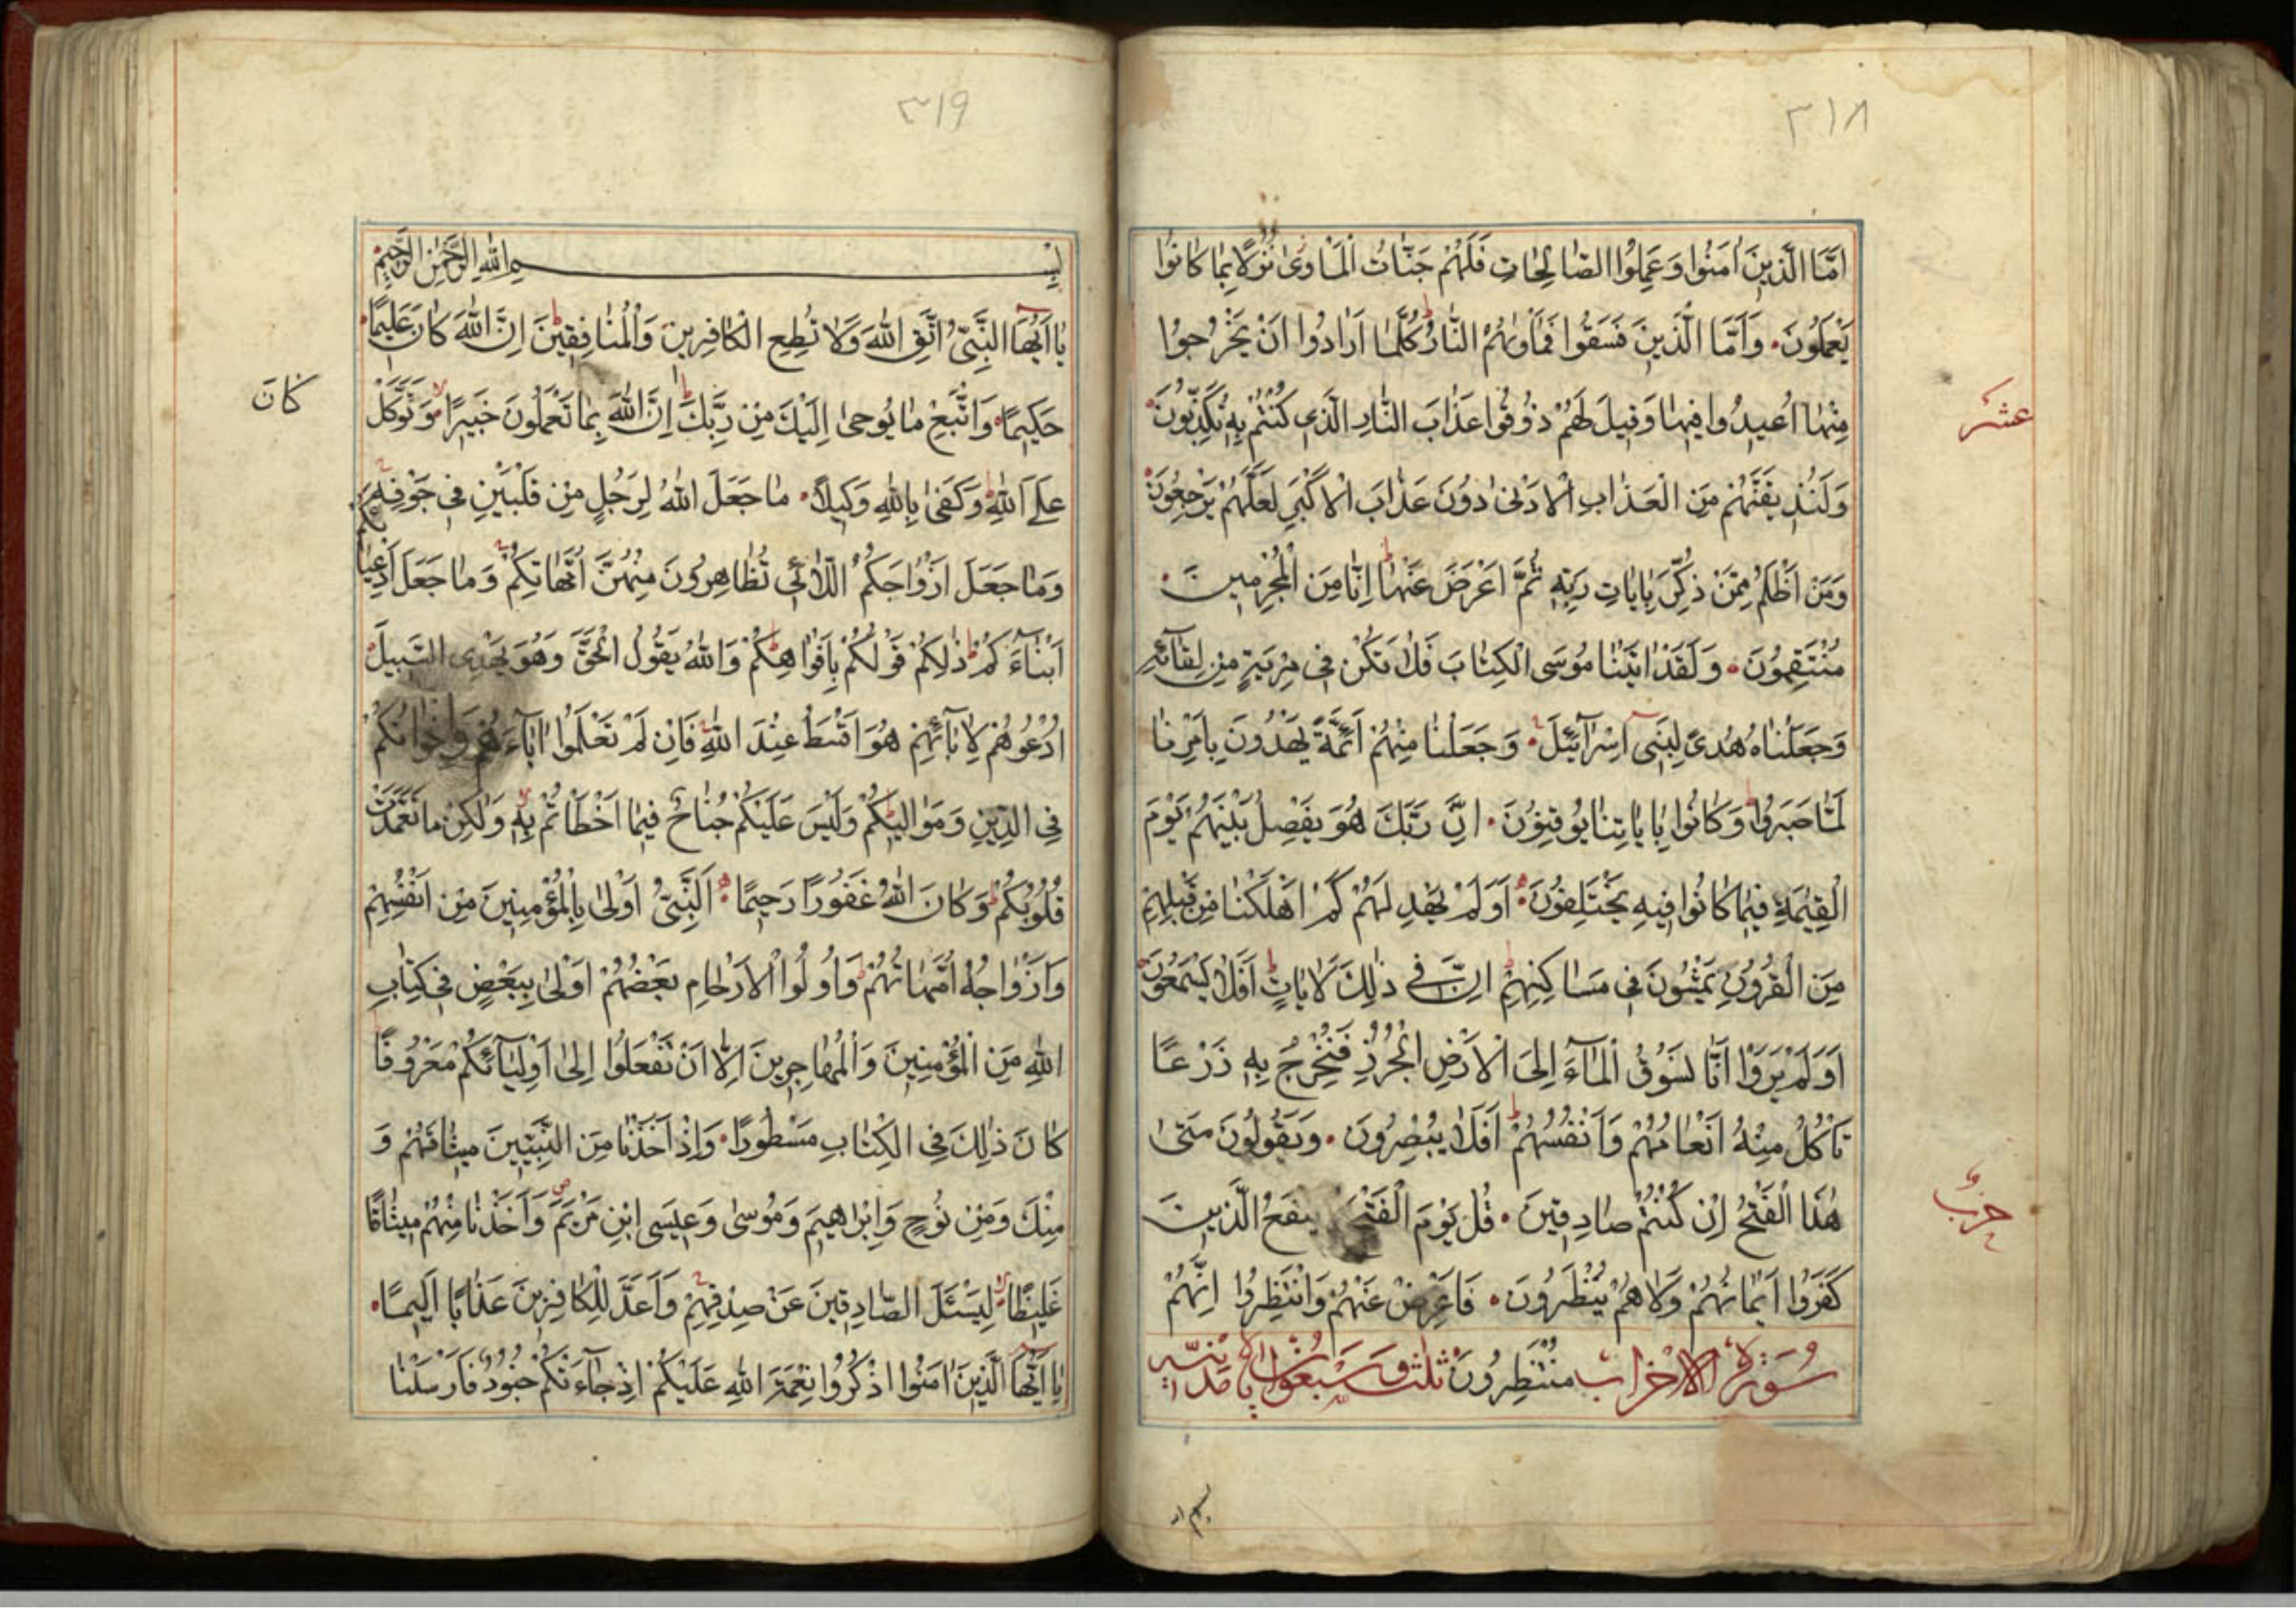 ٣١٨
اَمَّا الَّذِينَ اٰمَنُوا وَعَمِلُوا الصَّالِحَاتِ فَلَهُمْ جَنَّاتُ الْمَأْوىٰ نُزُلًا بِمَا كَانُوا
يَعْمَلُونَ وَاَمَّا الَّذِينَ فَسَقُوا فَمَأْوٰىهُمُ النَّارُ كُلَّمَا اَرَادُوا اَنْ يَخْرُجُوا
مِنْهَا اُعِيدُوا فِيهَا وَقِيلَ لَهُمْ ذُوقُوا عَذَابَ النَّارِ الَّذِي كُنْتُمْ بِهِ تُكَذِّبُونَ
عشر
وَلَنُذِيقَنَّهُمْ مِنَ الْعَذَابِ الْاَدْنىٰ دُونَ عَذَابَ الْاَكْبَرِ لَعَلَّهُمْ يَرْجِعُونَ
وَمَنْ اَظْلَمُ مِمَّنْ ذُكِّرَ بِاٰيَاتِ رَبِّهِ ثُمَّ اَعْرَضَ عَنْهَا اِنَّا مِنَ الْمُجْرِمِينَ
مُنْتَقِمُونَ وَلَقَدْ اٰتَيْنَا مُوسَى الْكِتَابَ فَلَا تَكُنْ فِي مِرْيَةٍ مِنْ لِقَآئِهِ
وَجَعَلْنَاهُ هُدىً لِبَنِي اِسْرَآئِيلَ وَجَعَلْنَا مِنْهُمْ اَئِمَّةً يَهْدُونَ بِاَمْرِنَا
لَمَّا صَبَرُوا وَكَانُوا بِاٰيَاتِنَا يُوقِنُونَ اِنَّ رَبَّكَ هُوَ يَفْصِلُ بَيْنَهُمْ يَوْمَ
الْقِيٰمَةِ فِيمَا كَانُوا فِيهِ يَخْتَلِفُونَ اَوَلَمْ يَهْدِ لَهُمْ كَمْ اَهْلَكْنَا مِنْ قَبْلِهِمْ
مِنَ الْقُرُونِ يَمْشُونَ فِي مَسَاكِنِهِمْ اِنَّ فِي ذٰلِكَ لَاٰيَاتٍ اَفَلَا يَسْمَعُونَ
اَوَلَمْ يَرَوْا اَنَّا نَسُوقُ الْمَآءَ اِلَى الْاَرْضِ الْجُرُزِ فَنُخْرِجُ بِهِ زَرْعًا
تَأْكُلُ مِنْهُ اَنْعَامُهُمْ وَاَنْفُسُهُمْ اَفَلَا يُبْصِرُونَ وَيَقُولُونَ مَتىٰ
هٰذَا الْفَتْحُ اِنْ كُنْتُمْ صَادِقِينَ قُلْ يَوْمَ الْفَتْحِ يَنْفَعُ الَّذِينَ
حزب
كَفَرُوا اِيمَانُهُمْ وَلَا هُمْ يُنْظَرُونَ فَاَعْرِضْ عَنْهُمْ وَانْتَظِرُوا اِنَّهُمْ
سُورَةُ الْاَحْزَابِ مُنْتَظِرُونَ ثلث وَسَبْعُونَ اٰيَة مدنية
٣١٩
بِسْمِ اللّٰهِ الرَّحْمٰنِ الرَّحِيمِ
يَا اَيُّهَا النَّبِيُّ اتَّقِ اللّٰهَ وَلَا تُطِعِ الْكَافِرِينَ وَالْمُنَافِقِينَ اِنَّ اللّٰهَ كَانَ عَلِيمًا
حَكِيمًا وَاتَّبِعْ مَا يُوحىٰ اِلَيْكَ مِنْ رَبِّكَ اِنَّ اللّٰهَ بِمَا تَعْمَلُونَ خَبِيرًا وَتَوَكَّلْ
كان
عَلَى اللّٰهِ وَكَفىٰ بِاللّٰهِ وَكِيلًا مَا جَعَلَ اللّٰهُ لِرَجُلٍ مِنْ قَلْبَيْنِ فِي جَوْفِهِ
وَمَا جَعَلَ اَزْوَاجَكُمُ اللَّائِي تُظَاهِرُونَ مِنْهُنَّ اُمَّهَاتِكُمْ وَمَا جَعَلَ اَدْعِيَاءَكُمْ
اَبْنَآءَكُمْ ذٰلِكُمْ قَوْلُكُمْ بِاَفْوَاهِكُمْ وَاللّٰهُ يَقُولُ الْحَقَّ وَهُوَ يَهْدِي السَّبِيلَ
اُدْعُوهُمْ لِاٰبَآئِهِمْ هُوَ اَقْسَطُ عِنْدَ اللّٰهِ فَاِنْ لَمْ تَعْلَمُوا اٰبَآءَهُمْ فَاِخْوَانُكُمْ
فِي الدِّينِ وَمَوَالِيكُمْ وَلَيْسَ عَلَيْكُمْ جُنَاحٌ فِيمَا اَخْطَأْتُمْ بِهِ وَلٰكِنْ مَا تَعَمَّدَتْ
قُلُوبُكُمْ وَكَانَ اللّٰهُ غَفُورًا رَحِيمًا اَلنَّبِيُّ اَوْلىٰ بِالْمُؤْمِنِينَ مِنْ اَنْفُسِهِمْ
وَاَزْوَاجُهُ اُمَّهَاتُهُمْ وَاُولُوا الْاَرْحَامِ بَعْضُهُمْ اَوْلىٰ بِبَعْضٍ فِي كِتَابِ
اللّٰهِ مِنَ الْمُؤْمِنِينَ وَالْمُهَاجِرِينَ اِلَّا اَنْ تَفْعَلُوا اِلىٰ اَوْلِيَآئِكُمْ مَعْرُوفًا
كَانَ ذٰلِكَ فِي الْكِتَابِ مَسْطُورًا وَاِذْ اَخَذْنَا مِنَ النَّبِيِّينَ مِيثَاقَهُمْ وَ
مِنْكَ وَمِنْ نُوحٍ وَاِبْرَاهِيمَ وَمُوسىٰ وَعِيسَى ابْنِ مَرْيَمَ وَاَخَذْنَا مِنْهُمْ مِيثَاقًا
غَلِيظًا لِيَسْئَلَ الصَّادِقِينَ عَنْ صِدْقِهِمْ وَاَعَدَّ لِلْكَافِرِينَ عَذَابًا اَلِيمًا
يَا اَيُّهَا الَّذِينَ اٰمَنُوا اذْكُرُوا نِعْمَةَ اللّٰهِ عَلَيْكُمْ اِذْ جَآءَتْكُمْ جُنُودٌ فَاَرْسَلْنَا